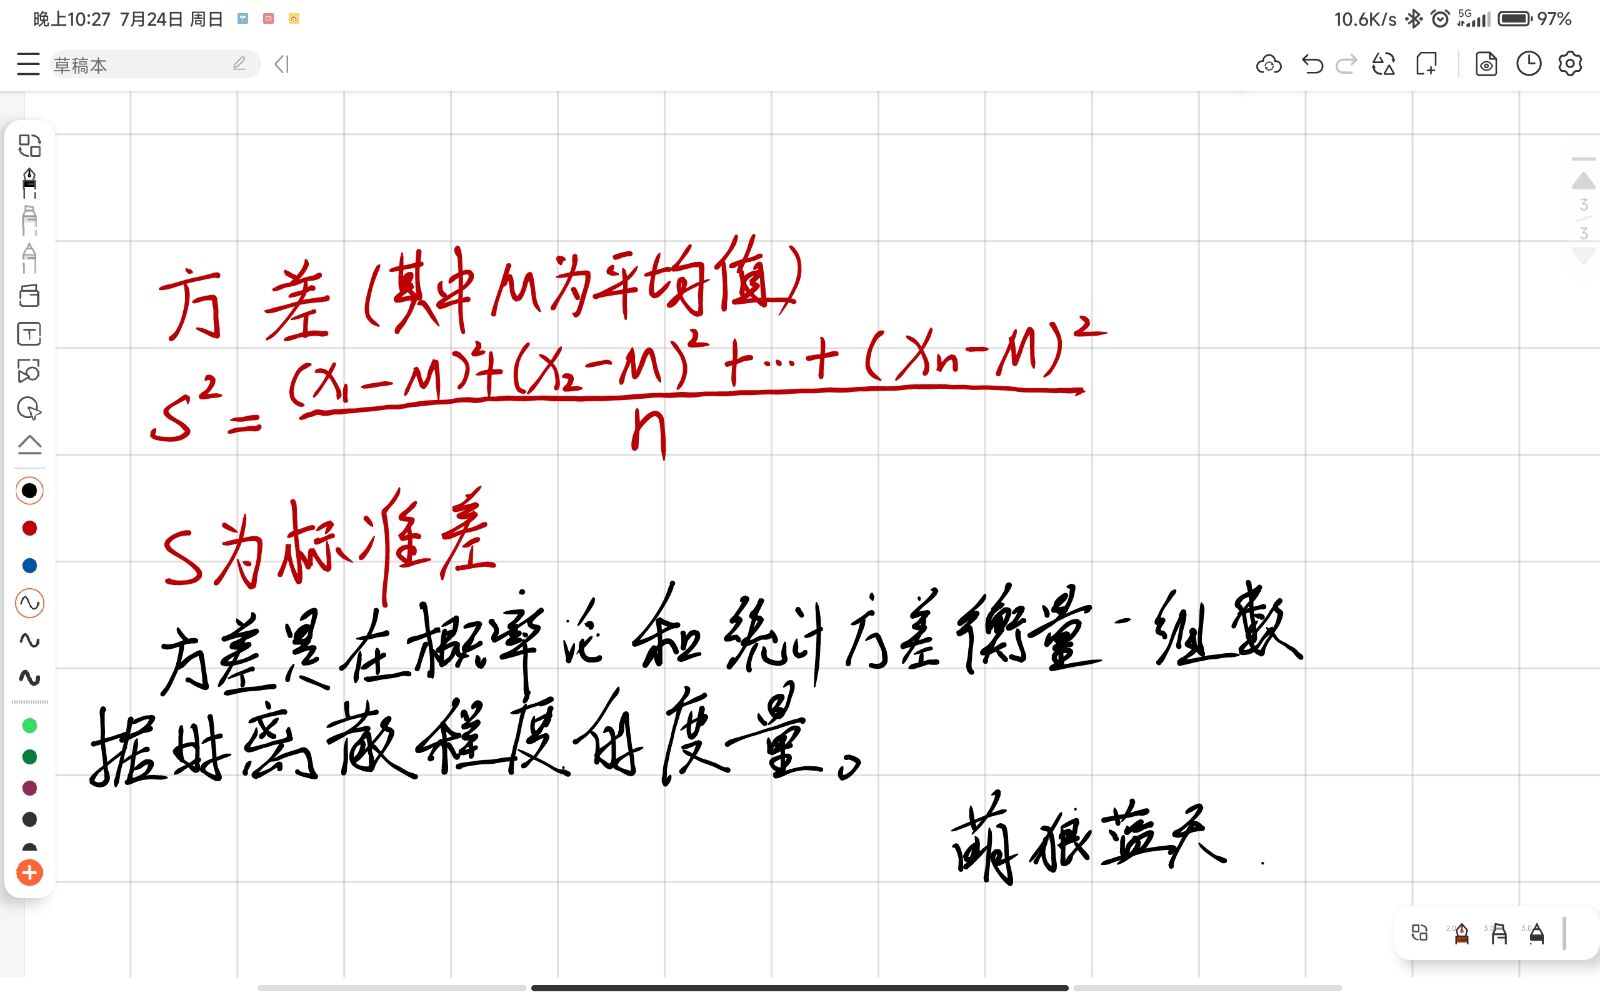 晚上10:27 7月24日 周日 10.6K/s 5G 97%
草稿本
3
3
方差(其中M为平均值)
S²=(X₁-M)²+(X₂-M)²+…+(Xn-M)²
n
S为标准差
方差是在概率论和统计方差衡量一组数
据时离散程度的度量。
萌狼蓝天